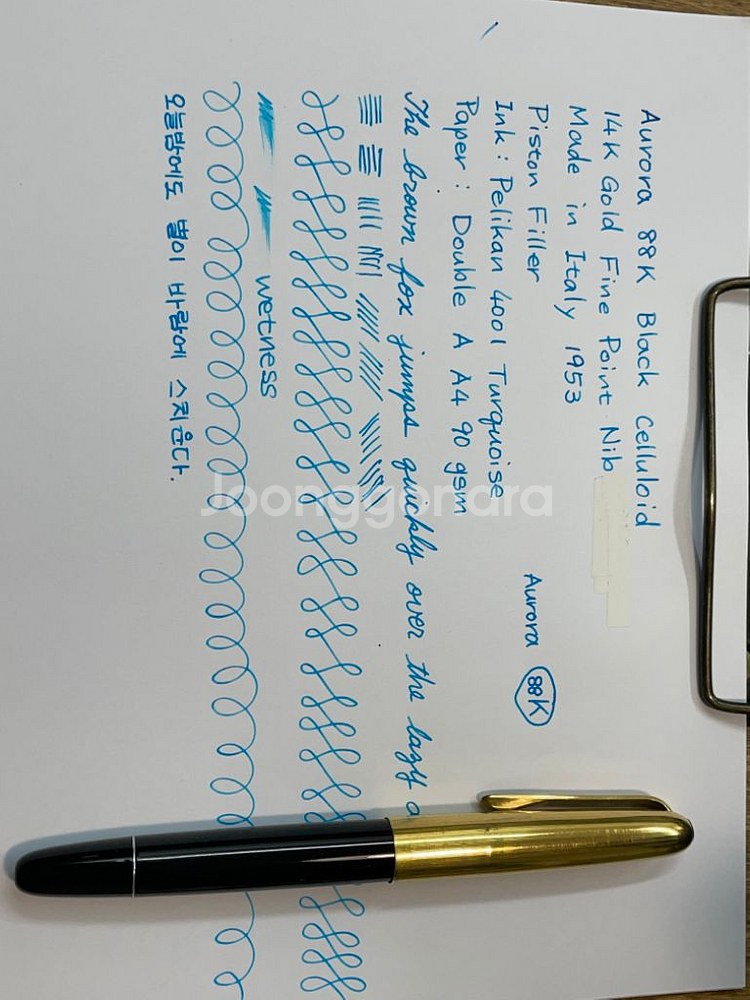 Aurora 88K Black Celluloid
14K Gold Fine Point Nib
Made in Italy 1953
Piston Filler
Aurora 88K
Ink : Pelikan 4001 Turquoise
Paper : Double A A4 90 gsm
The brown fox jumps quickly over the lazy
wetness
오늘밤에도 별이 바람에 스치운다.
Joonggonara